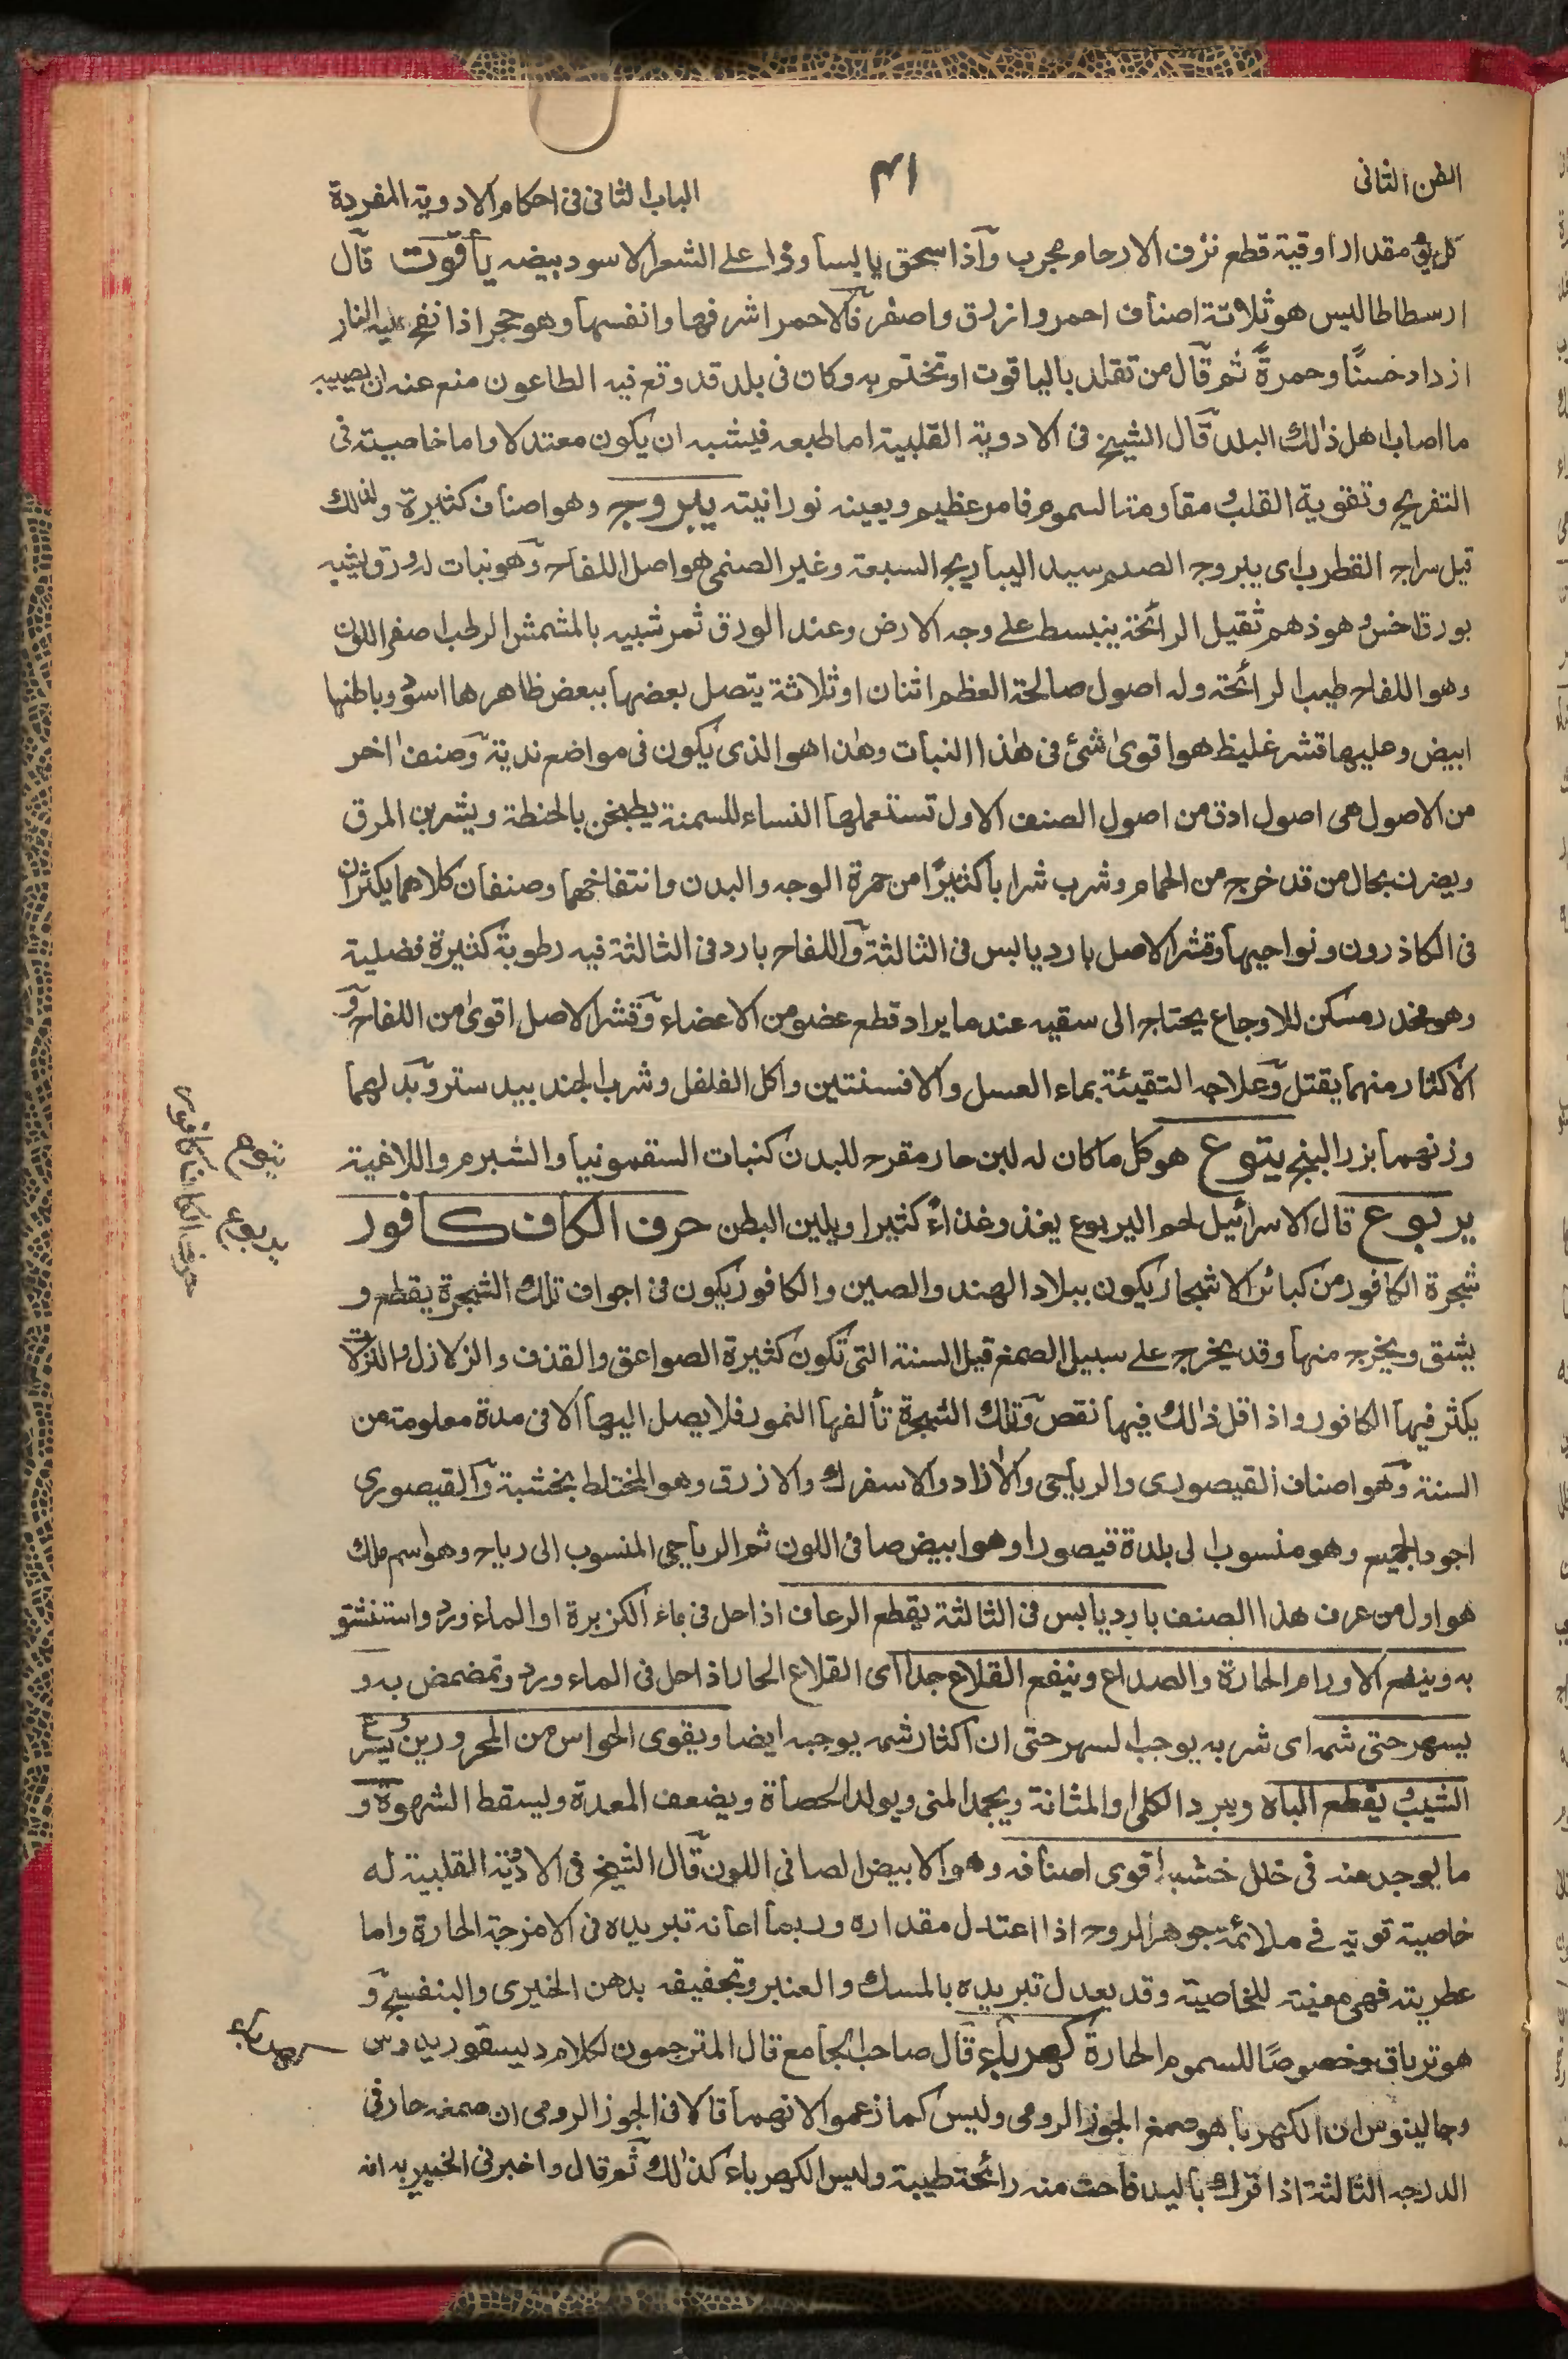 الفن الثانى
٣١
الباب الثانى فى احكام الادوية المفردة
كل يوم مقدار اوقية قطع نزف الارحام مجرب وآذا سحق يابسا وذر على الشعر الاسود بيضه ياقوت قآل
ارسطاطاليس هو ثلاثة اصناف احمر وازرق واصفر فآلاحمر اشرفها وانفسها وهو حجر اذا نفخ عليه النار
ازداد حسنًا وحمرةً ثم قآل من تقلد بالياقوت او تختم به وكان فى بلد قد وقع فيه الطاعون منع عنه ان يصيبه
ما اصاب اهل ذالك البلد قآل الشيخ فى الادوية القلبية اما طبعه فيشبه ان يكون معتدلا واما خاصيته فى
التفريح وتقوية القلب ومقاومة السموم فامر عظيم ويعينه نورانيته يبروج وهو اصناف كثيرة ولذلك
قيل سراج القطرب اى يبروج الصنم سيد اليباريج السبعة وغير الصنمى هو اصل اللفاح وهو نبات له ورق يشبه
بورق الخس وهو ذهم ثقيل الرائحة ينبسط على وجه الارض وعند الورق ثمر شبيه بالمشمش الرطب اصفر اللون
وهو اللفاح طيب الرائحة وله اصول صالحة العظم اثنان او ثلاثة يتصل بعضها ببعض ظاهرها اسود وباطنها
ابيض وعليها قشر غليظ هو اقوى شئ فى هذا النبات وهذا هو الذى يكون فى مواضع ندية وصنف اخر
من الاصول هى اصول ادق من اصول الصنف الاول تستعملها النساء للسمنة يطبخن بالحنطة ويشربن المرق
ويصرن بحال من قد خرج من الحمام وشرب شرابا كثيرًا من حمرة الوجه والبدن وانتفاخهما وصنفان كلاهما يكثران
فى الكاذرون ونواحيها وقشر الاصل بارد يابس فى الثالثة وآللفاح بارد فى الثالثة فيه رطوبة كثيرة فضلية
وهو مخدر مسكن للاوجاع يحتاج الى سقيه عند ما يراد قطع عضو من الاعضاء وقشر الاصل اقوى من اللفاح و
الاكثار منهما يقتل وعلاجه التقيئة بماء العسل والافسنتين واكل الفلفل وشرب الجند بيدستر وبدلهما
وزنهما بزر البنج يتوع هو كل ما كان له لبن حار مقرح للبدن كنبات السقمونيا والشبرم واللاغية
يربوع قال الاسرائيل لحم اليربوع يغذو غذاءً كثيرا ويلين البطن حرف الكاف كافور
شجرة الكافور من كبائر الاشجار يكون ببلاد الهند والصين والكافور يكون فى اجواف تلك الشجرة يقطع و
يشق ويخرج منها وقد يخرج على سبيل الصمغ قيل السنة التى تكون كثيرة الصواعق والقذف والزلازل والنزلات
يكثر فيها الكافور واذا قل ذالك فيها نقص وتلك الشجرة تألفها النمور فلا يصل اليها الا فى مدة معلومة من
السنة وهو اصناف القيصورى والرياحى والازاد والاسفرك والازرق وهو المختلط بخشبة وآلقيصورى
اجود الجميع وهو منسوب الى بلدة قيصورا وهو ابيض صافى اللون ثم الرياحى المنسوب الى رياح وهو اسم ملك
هو اول من عرف هذا الصنف بارد يابس فى الثالثة يقطع الرعاف اذا حل فى ماء الكزبرة او الماء ورد واستنشق
به وينفع الاورام الحارة والصداع وينفع القلاع جدا اى القلاع الحار اذا حل فى الماء ورد وتمضمض به و
يسهر حتى شمه اى شربه يوجب السهر حتى ان اكثار شمه يوجبه ايضا ويقوى الحواس من المحرورين ويسرع
الشيب ويقطع الباه ويبرد الكلى والمثانة ويجمد المنى ويولد الحصاة ويضعف المعدة ويسقط الشهوة و
ما يوجد منه فى خلل خشبه اقوى اصنافه وهو الابيض الصافى اللون قآل الشيخ فى الادوية القلبية له
خاصية قوية فى ملائمة جوهر الروح اذا اعتدل مقداره وربما اعانه تبريده فى الامزجة الحارة واما
عطريته فهى معينة للخاصية وقد يعدل تبريده بالمسك والعنبر وتجفيفه بدهن الخيرى والبنفسج و
هو ترياق وخصوصًا للسموم الحارة كهرباء قآل صاحب الجامع قال المترجمون لكلام ديسقوريدوس
وجالينوس ان الكهربا هو صمغ الجوز الرومى وليس كما زعموا لانهما قالا فى الجوز الرومى ان صمغه حار فى
الدرجه الثالثة اذا فرك باليد فاحت منه رائحة طيبة وليس الكهرباء كذالك ثم قال واخبرنى الخبير به انه
يتوع
يربوع
حرف الكاف كافور
كهرباء